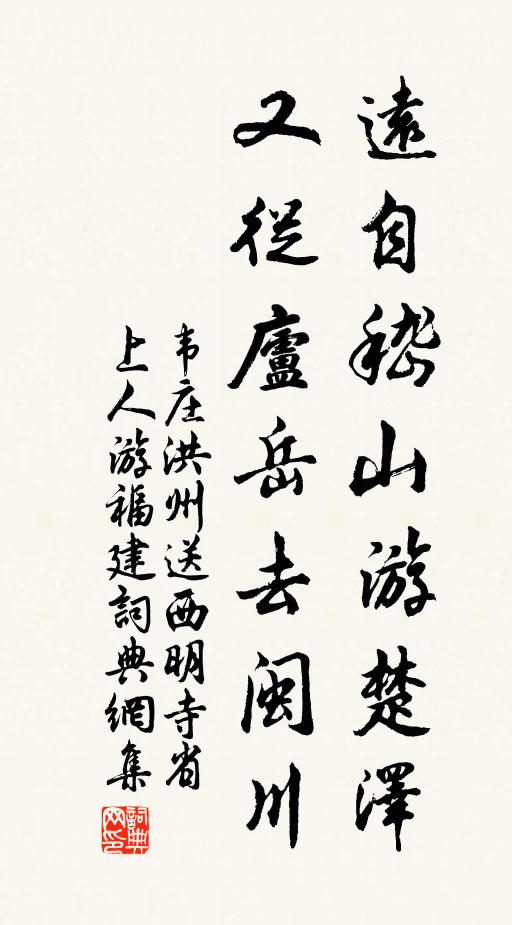 遠自嵇山游楚澤
又從廬岳去閩川
韦庄洪州送西明寺省
上人游福建詞典網集
詞典
网印